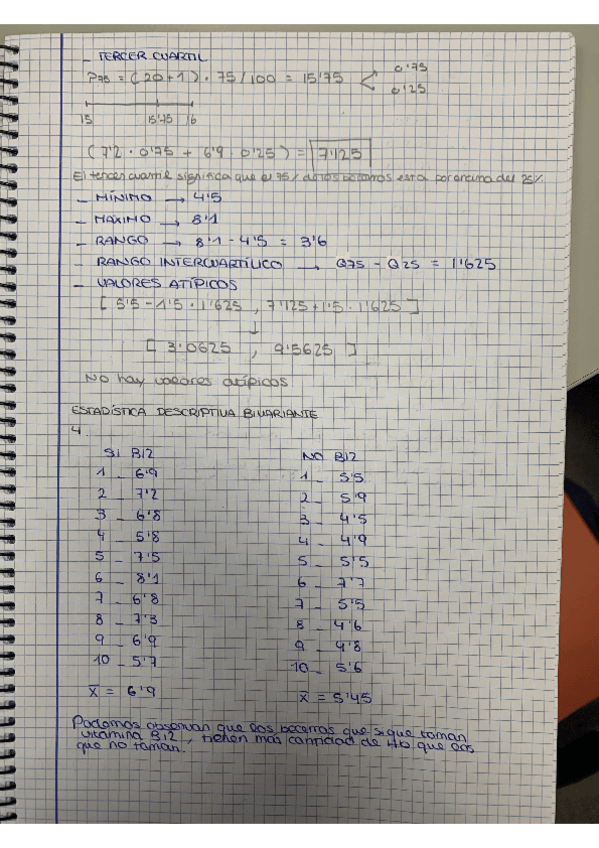 - TERCER CUARTIL
P75 = (20+1) · 75/100 = 15'75 < 0'75
0'25
15 15'75 16
(7'2 · 0'75 + 6'9 · 0'25) = 7'125
El tercer cuartil significa que el 75% de los becerros esta por encima del 25%
- MÍNIMO → 4'5
- MÁXIMO → 8'1
- RANGO → 8'1 - 4'5 = 3'6
- RANGO INTERCUARTÍLICO → Q75 - Q25 = 1'625
- VALORES ATÍPICOS
[ 5'5 - 1'5 · 1'625 , 7'125 + 1'5 · 1'625 ]
↓
[ 3'0625 , 9'5625 ]
No hay valores atípicos
ESTADÍSTICA DESCRIPTIVA BIVARIANTE
4.
SI B12
1 - 6'9
2 - 7'2
3 - 6'8
4 - 5'8
5 - 7'5
6 - 8'1
7 - 6'8
8 - 7'3
9 - 6'9
10 - 5'7
x̄ = 6'9
NO B12
1 - 5'5
2 - 5'9
3 - 4'5
4 - 4'9
5 - 5'5
6 - 7'7
7 - 5'5
8 - 4'6
9 - 4'8
10 - 5'6
x̄ = 5'45
Podemos observar que los becerros que si que toman
vitamina B12, tienen mas cantidad de Hb que los
que no toman.